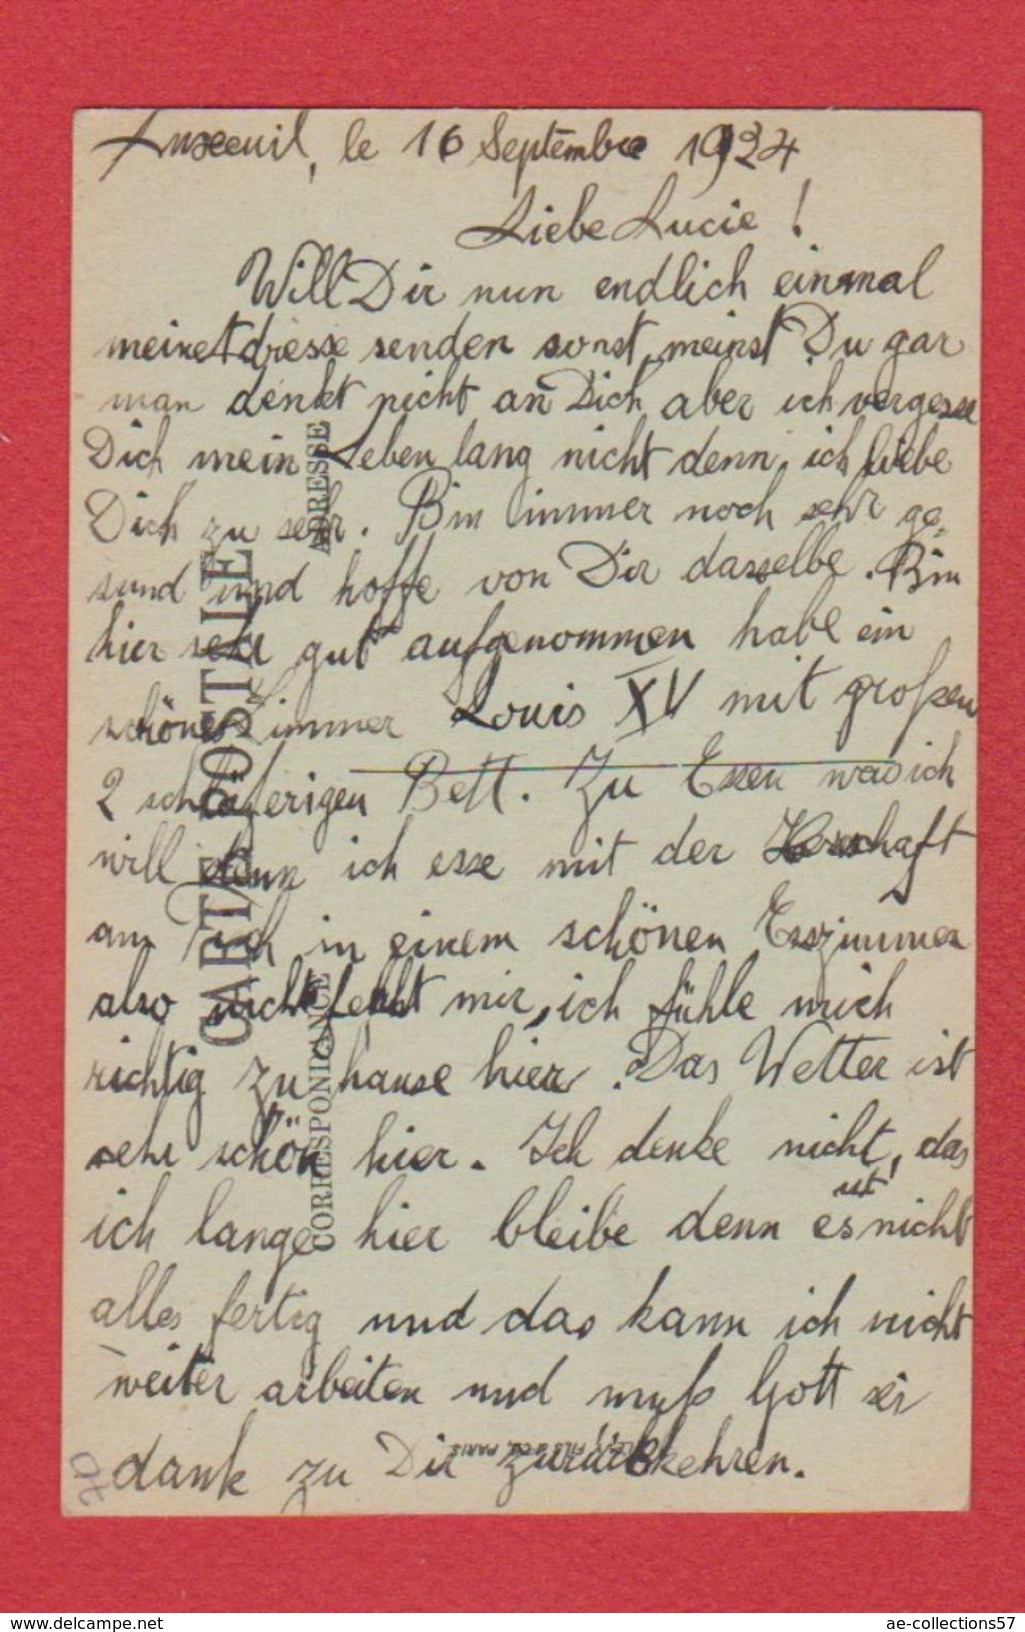 Luxeuil, le 16 Septembre 1924
Liebe Lucie !
Will Dir nun endlich einmal
meine Adresse senden sonst meinst Du gar
man denkt nicht an Dich aber ich vergesse
Dich mein Leben lang nicht denn ich liebe
Dich zu sehr. Bin immer noch sehr ge-
sund und hoffe von Dir dasselbe. Bin
hier sehr gut aufgenommen habe ein
schönes Zimmer Louis XV mit großen
2 schläferigen Bett. Zu Essen was ich
will denn ich esse mit der Herschaft
am Tisch in einem schönen Esszimmer
also nicht fehlt mir, ich fühle mich
richtig zu hause hier. Das Wetter ist
sehr schön hier. Ich denke nicht, das
ich lange hier bleibe denn es ist nicht
alles fertig und das kann ich nicht
weiter arbeiten und muß Gott sei
dank zu Dir zurückkehren.
CARTE POSTALE
CORRESPONDANCE
ADRESSE
PARIS
www.delcampe.net
ae-collections57